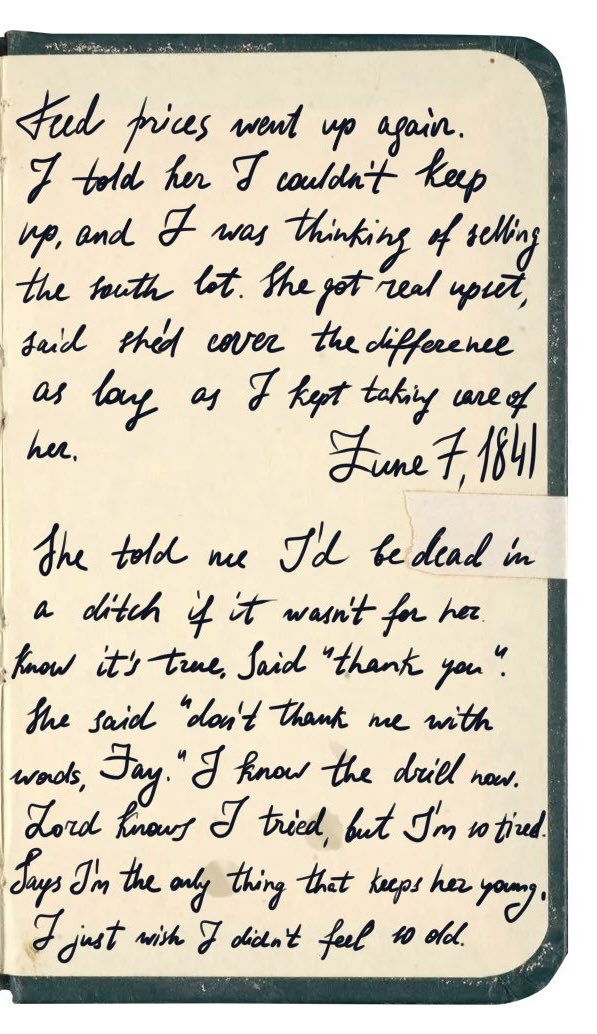 Feed prices went up again.
I told her I couldn't keep
up, and I was thinking of selling
the south lot. She got real upset,
said she'd cover the difference
as long as I kept taking care of
her.
June 7, 1841
She told me I'd be dead in
a ditch if it wasn't for her.
Know it's true. Said "thank you".
She said "don't thank me with
words, Jay." I know the drill now.
Lord knows I tried, but I'm so tired.
Says I'm the only thing that keeps her young.
I just wish I didn't feel so old.